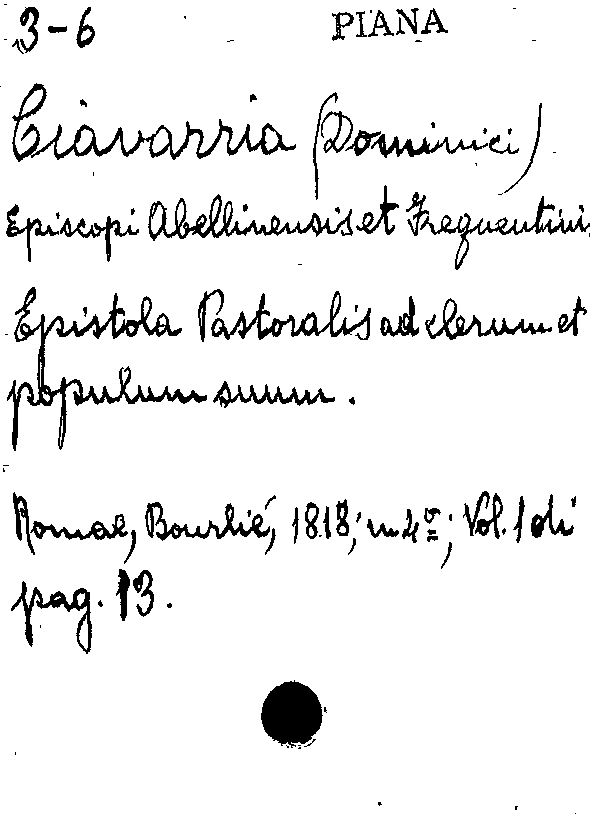 3-6 PIANA
Ciavarria (Dominici)
Episcopi Abellinensis et Frequentini.
Epistola Pastoralis ad clerum et
populum suum.
Romae, Bourlié, 1818; in 4º; Vol. 1 di
pag. 13.